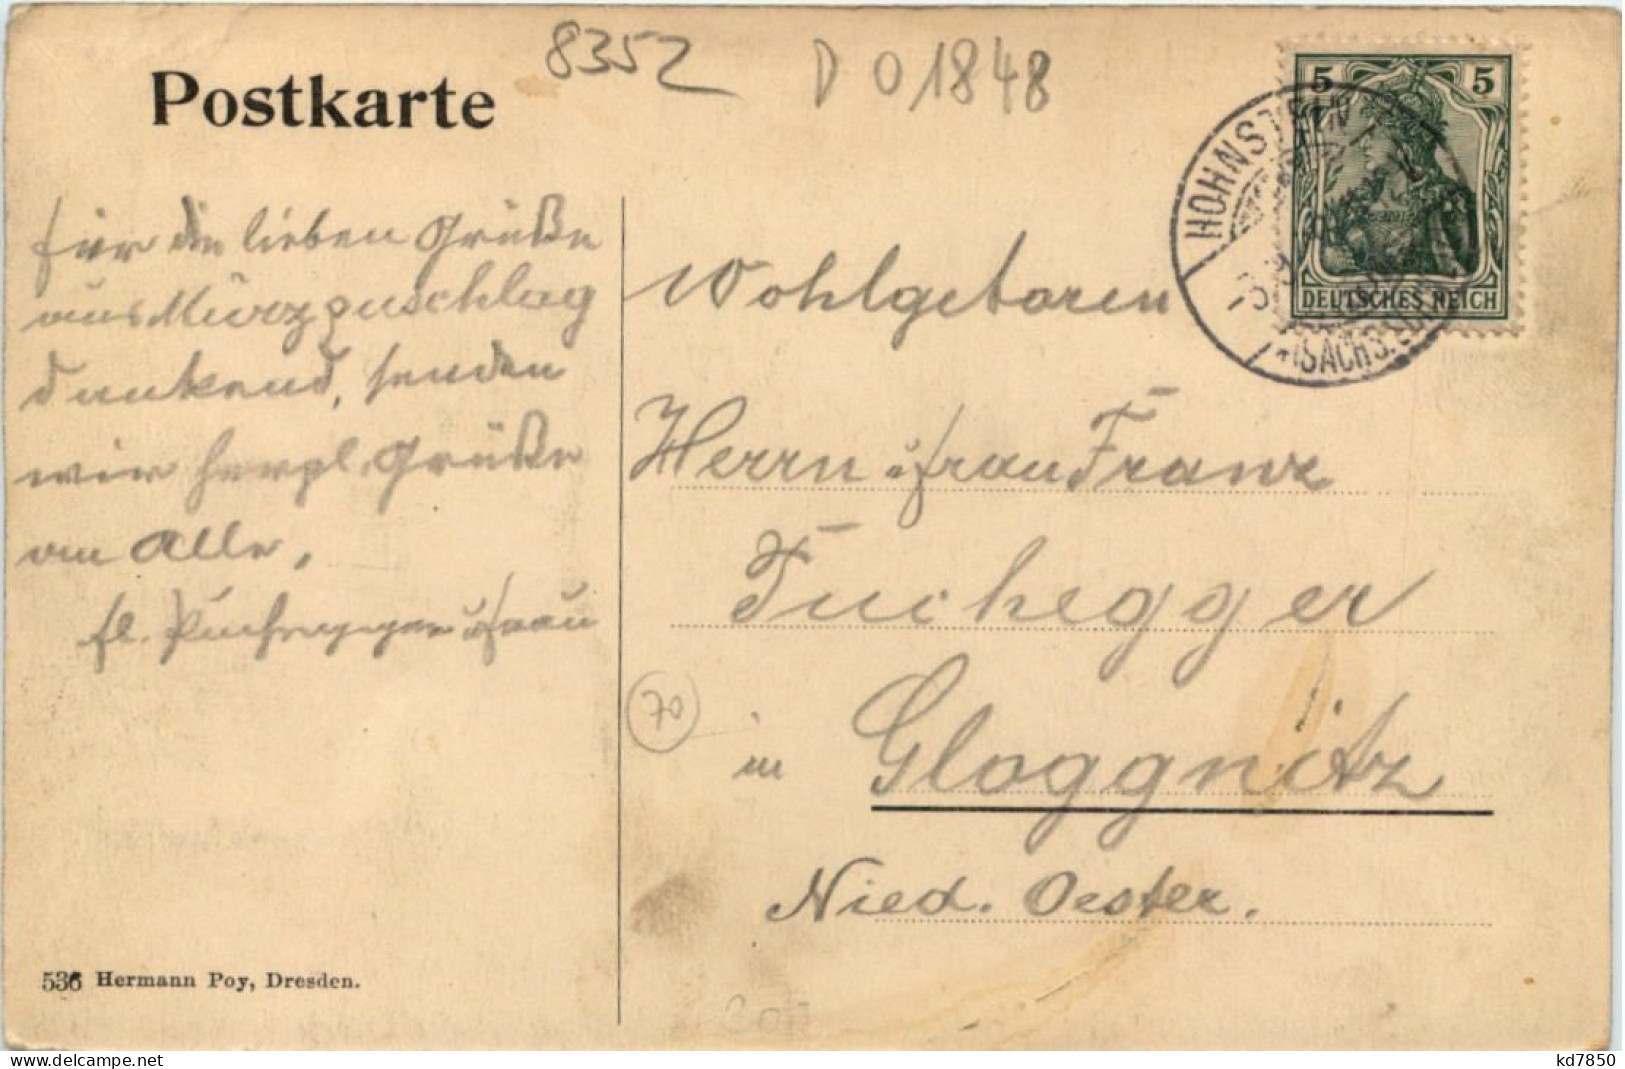 8352
D 01848
Postkarte
5 5
HOHNSTEIN
DEUTSCHES REICH
(SÄCHS.
für die lieben Grüße
aus Mürzzuschlag
dankend, senden
wir herzl. Grüße
an Alle,
Wohlgeboren
Herrn u Frau Franz
Tuchegger
70
in Gloggnitz
Nied. Oester.
536 Hermann Poy, Dresden.
kd7850